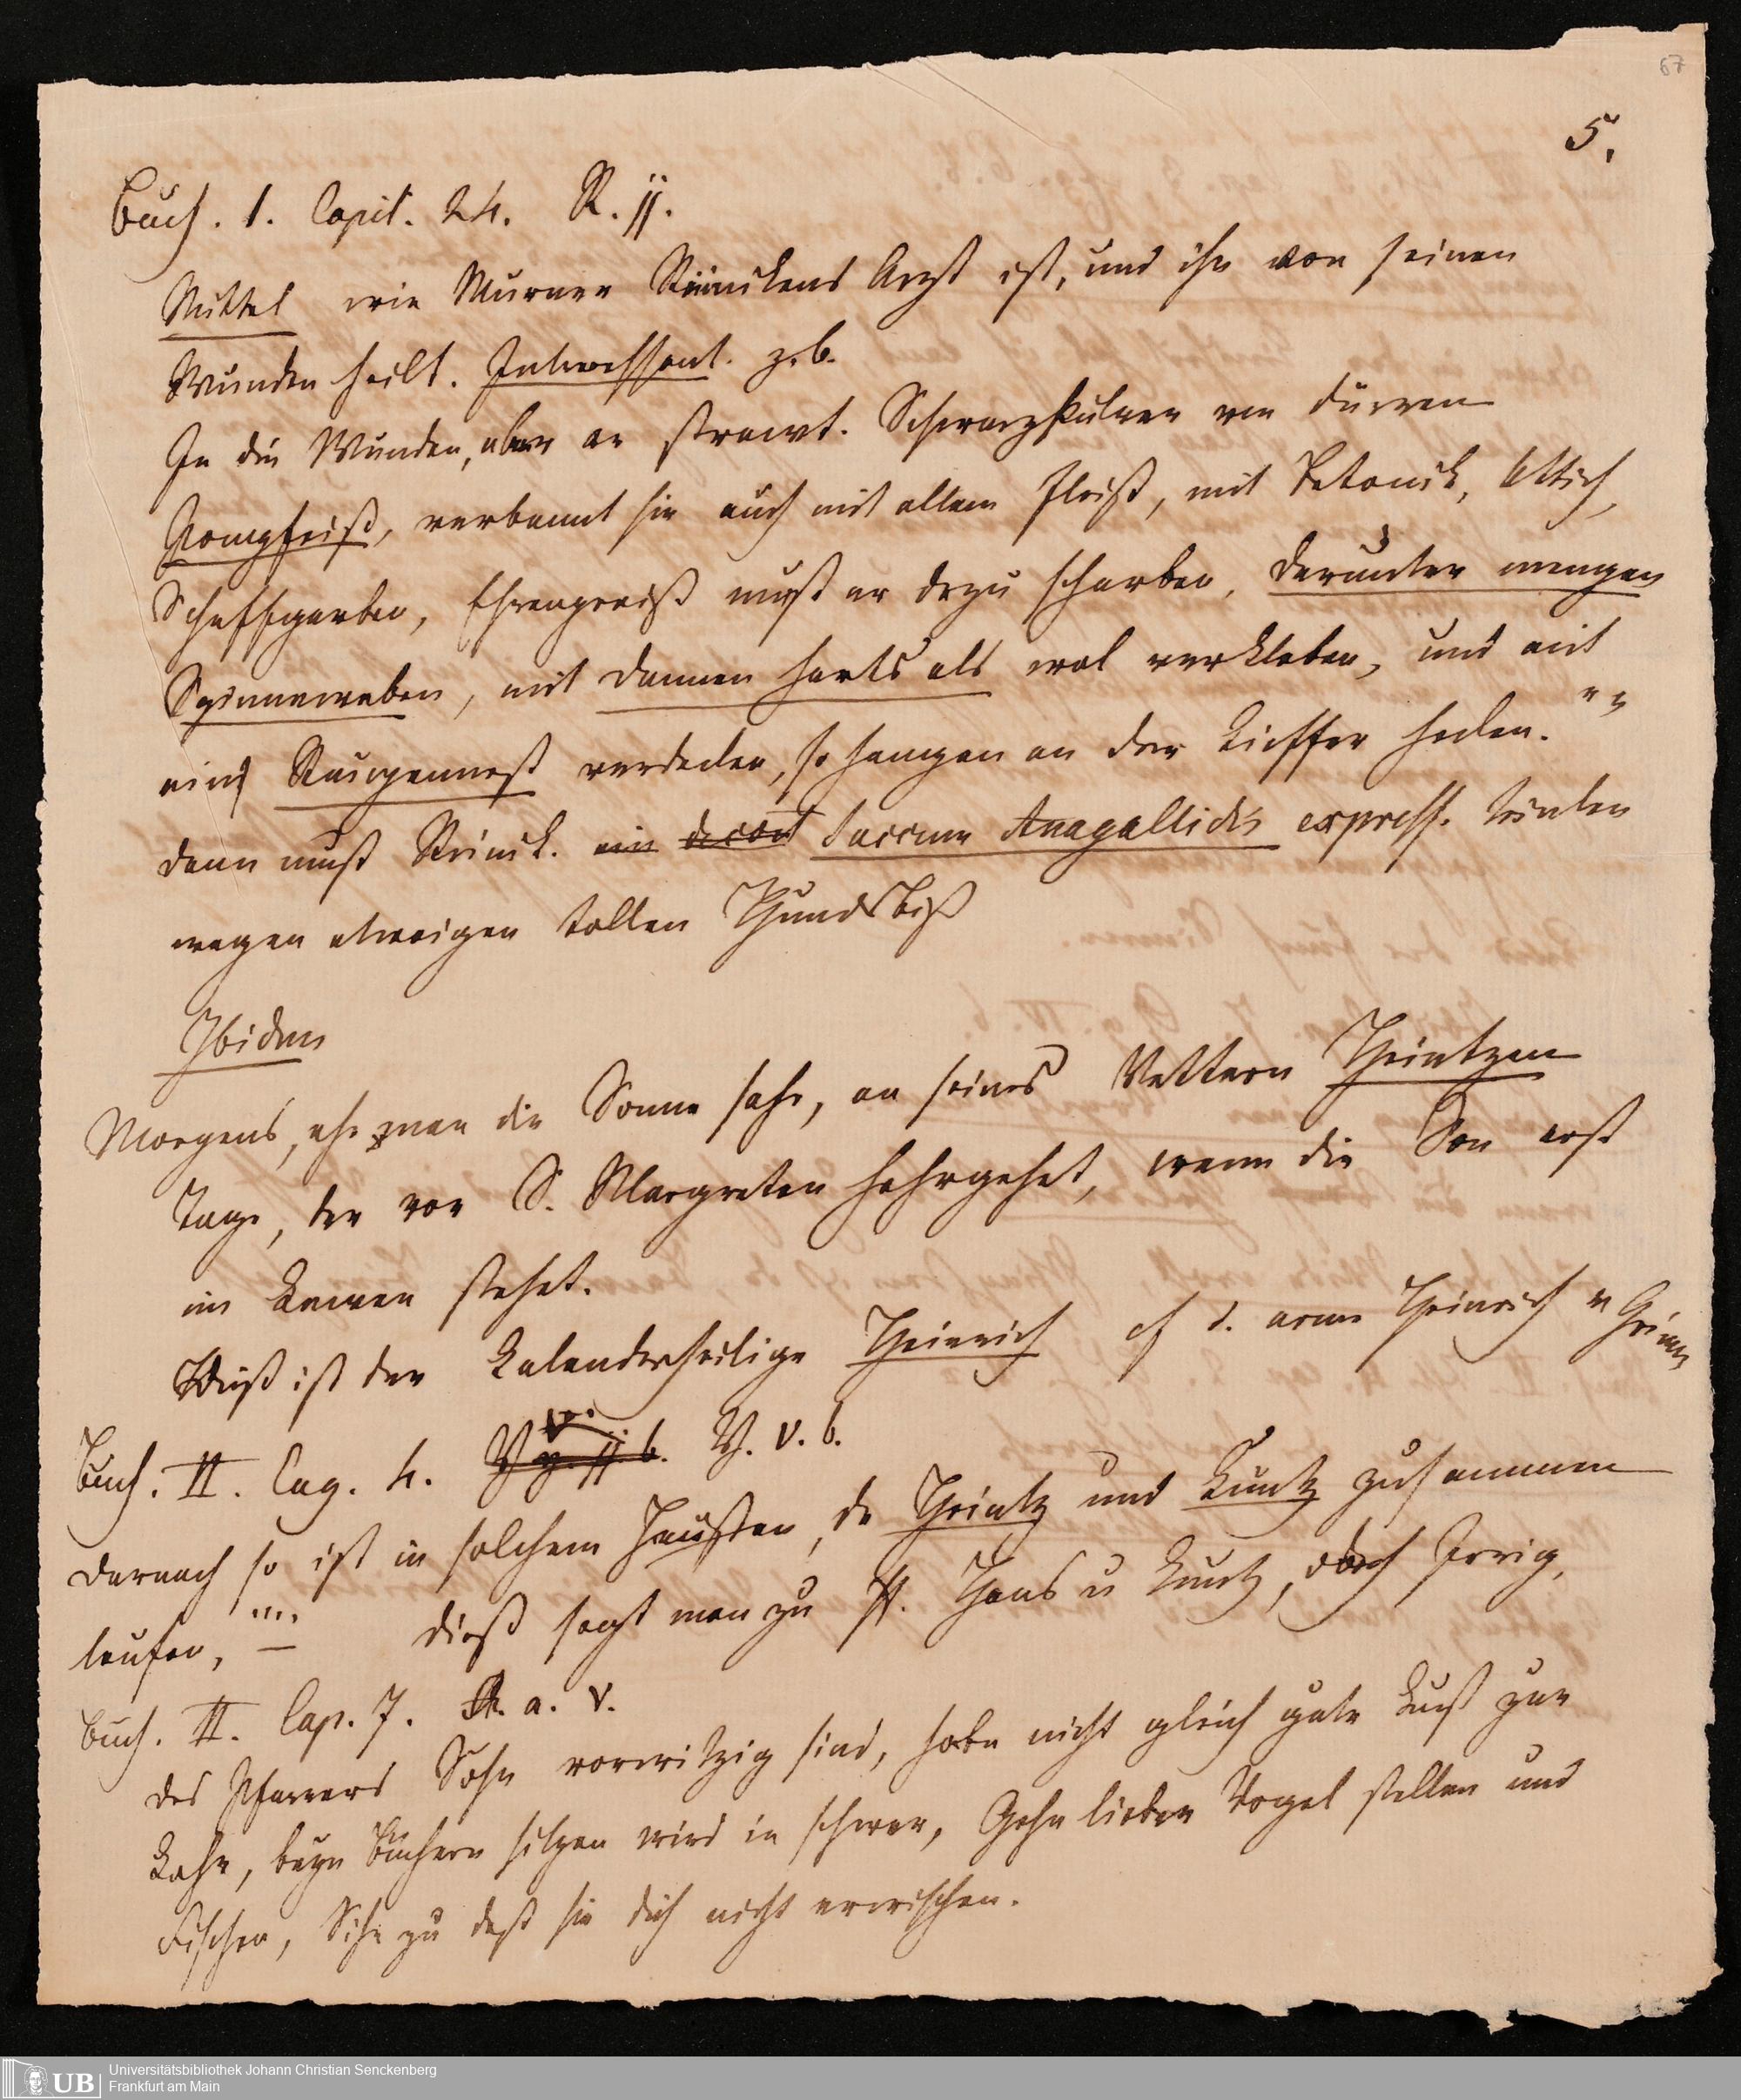 67
5.
Buch. 1. Capit. 24. R. jj.
Mittel wie Murner Reinikens Arzt ist, und ihn von seinen
Wunden heilt. Interessant. z.b.
In die Wunden, aber er strewt. Schwarzpulver von dürren
Pompfeiß, verbannt sie auch mit allem Fleiß, mit Betonick, Attich,
Schaffgarben, Ehrenpreiß must er dazu scharben, darunter mengen
Spinneweben, mit dannen harts als wol verkleben, und mit
eins Raupennest verdecken, so hangen an der Kieffer hecken. "
dann muß Reinick. ein decoct Succum Anagallidis express. trinken
wegen etwaigen tollen Hundsbiß
Ibidem
Morgens, ehe man die Sonne sahe, an seines Vettern Heintzen
Tage, der vor S. Margreten hehrgehet, wenn die Son erst
im Lewen stehet.
Dieß ist der Kalenderheilige Heinrich cf d. arme Heinrich v Grimm
Buch. II. Cap. 4. Y. v. b.
darnach so ist in solchem Haußen, da Heintz und Kuntz zusammen
laufen, "" — dieß sagt man zu ff. Hans u Kuntz, doch irrig,
Buch. II. Cap. 7. a. v.
des Pfarrers Sohn vorwitzig sind, habe nicht gleich gute Lust zur
Lahr, beyn Büchern sitzen wird in schwer, Gehn lieber Vogel stellen und
Fischen, Sihe zu daß sie dich nicht erwischen.
UB Universitätsbibliothek Johann Christian Senckenberg
Frankfurt am Main